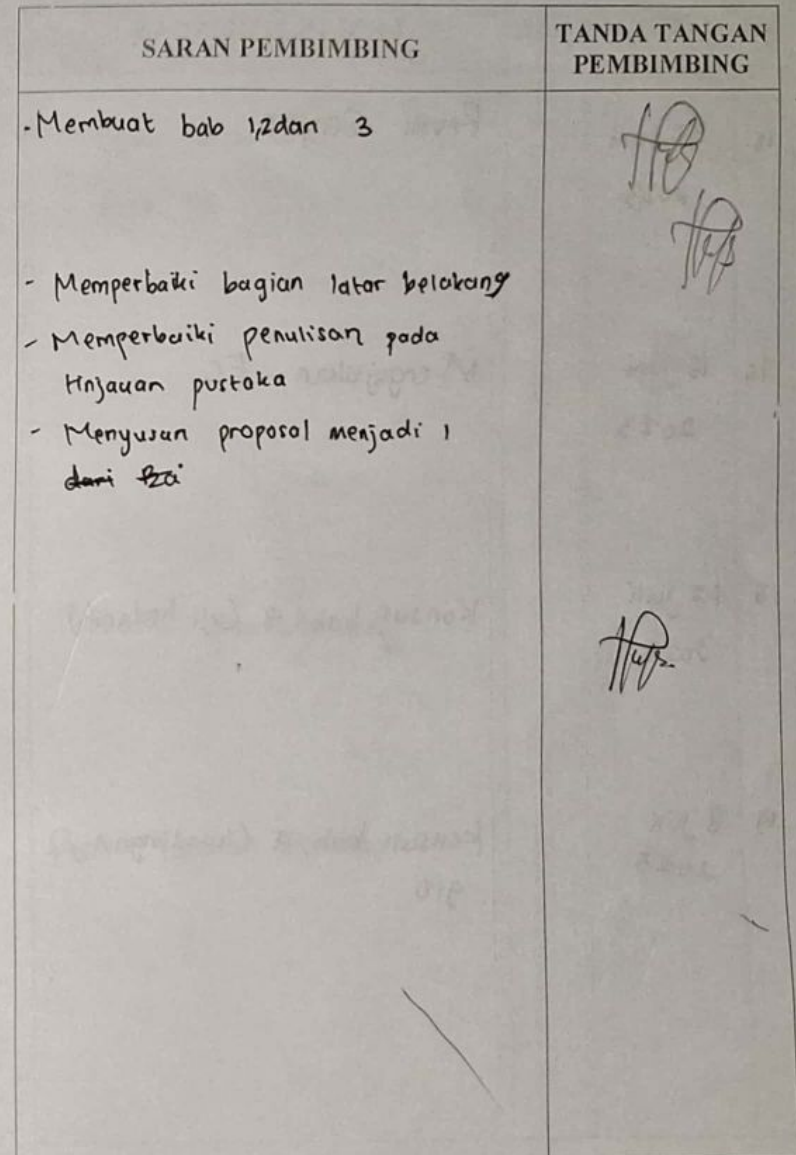 SARAN PEMBIMBING
TANDA TANGAN
PEMBIMBING
- Membuat bab 1,2 dan 3
- Memperbaiki bagian latar belakang
- Memperbaiki penulisan pada
tinjauan pustaka
- Menyusun proposal menjadi 1
dari